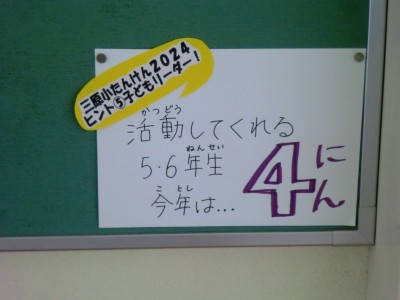 三原小たんけん2024
ヒント⑤子どもリーダー!
かつどう
活動してくれる
ねんせい
5・6年生
ことし
今年は...
4にん